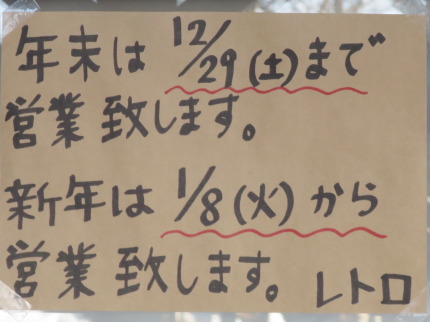 年末は 12/29(土)まで
営業致します。
新年は 1/8(火)から
営業致します。 レトロ